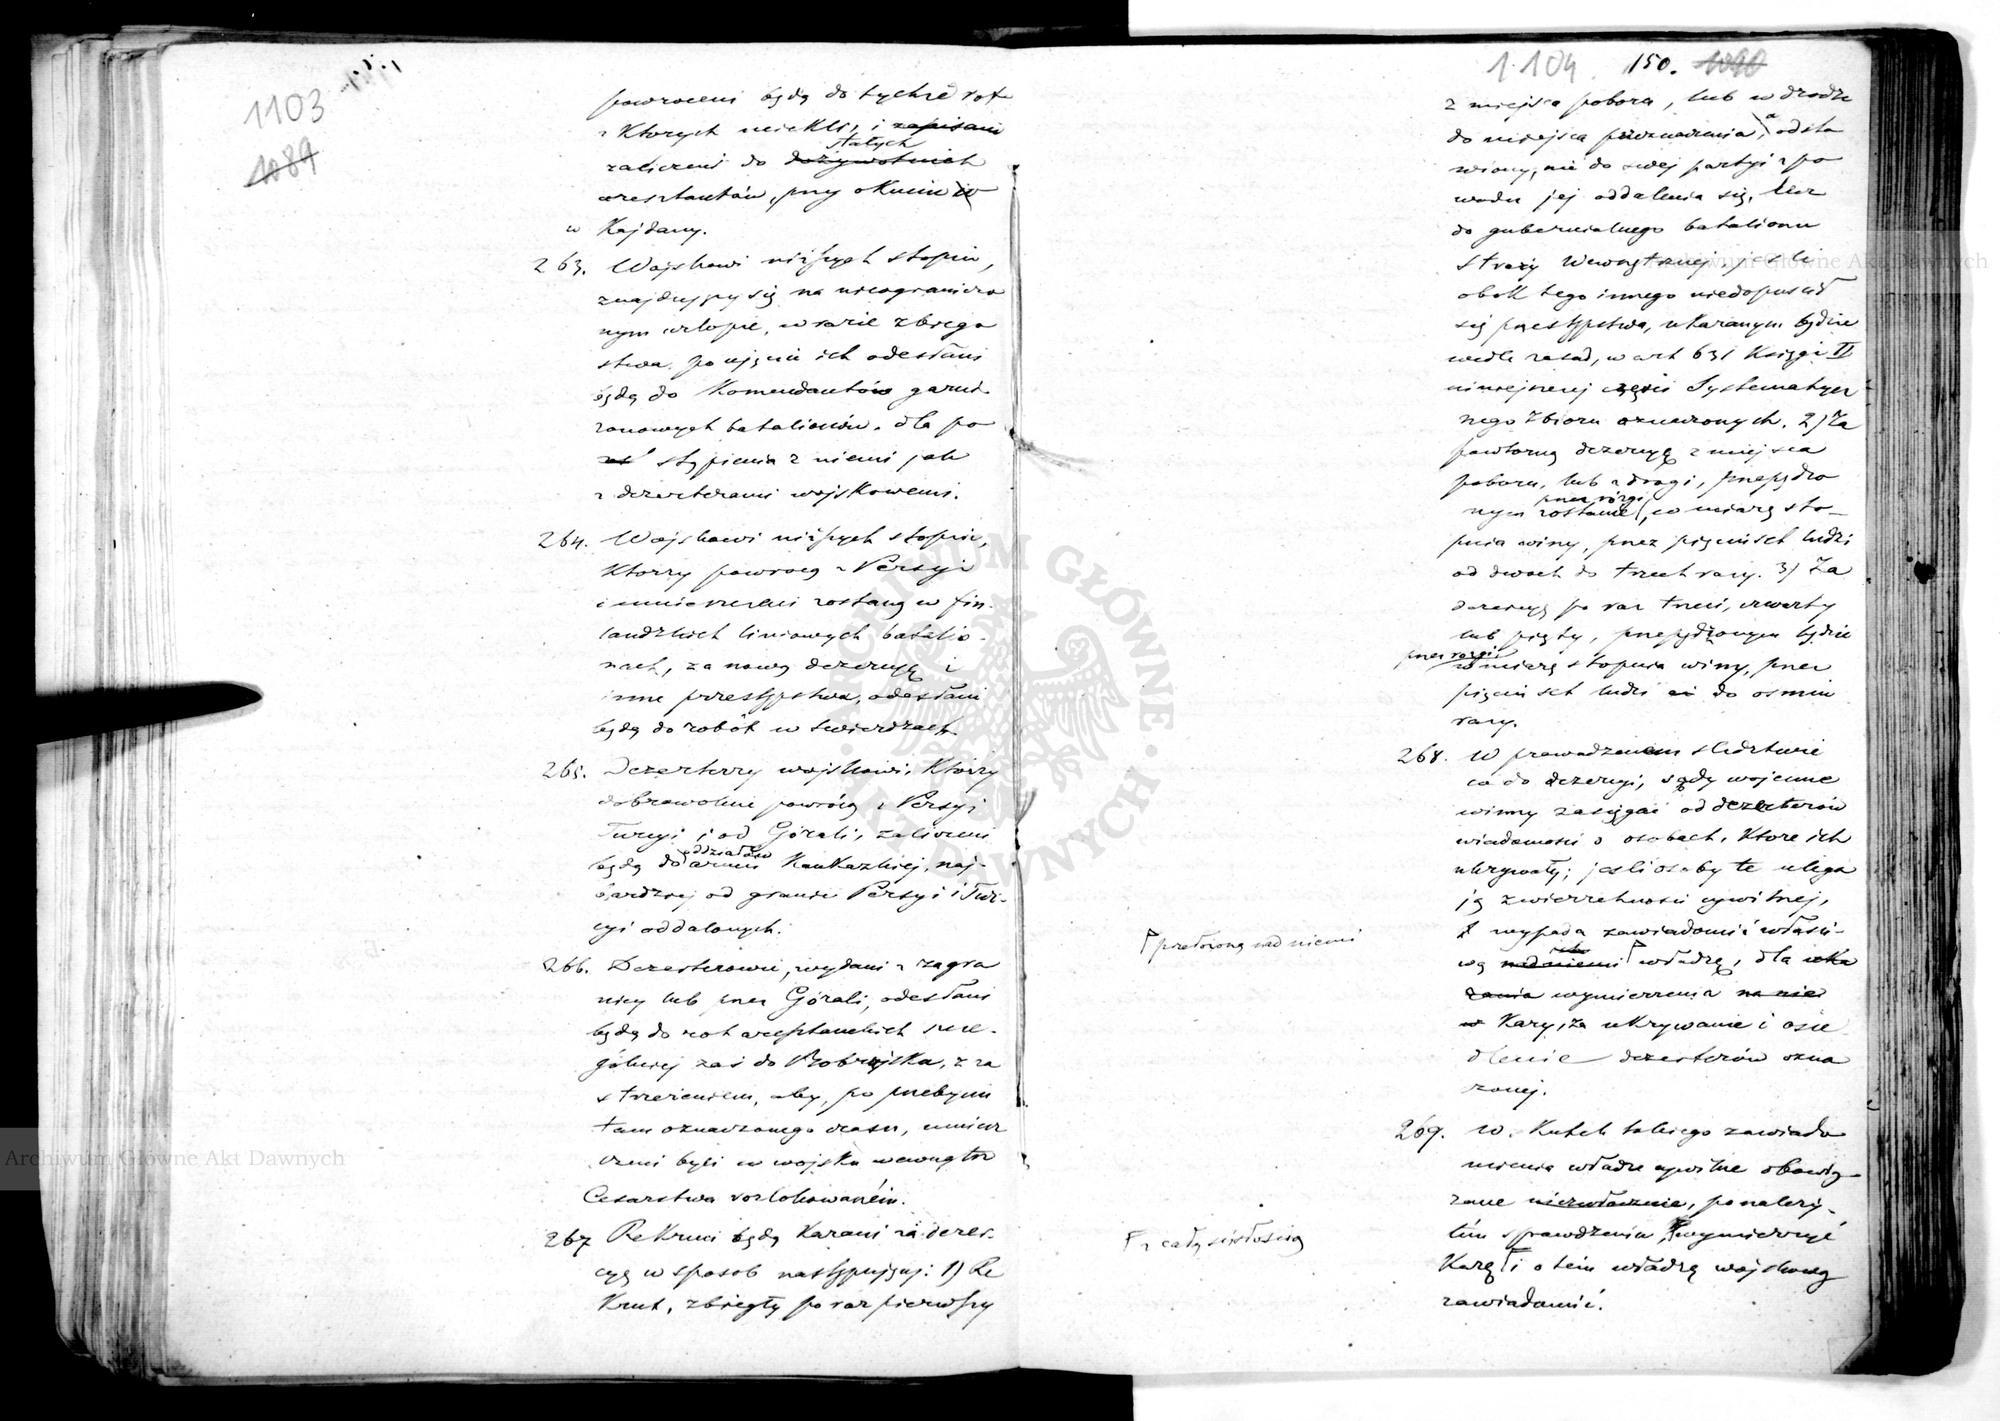 1103
1089
powróceni będą do tychże rot
z Których uciekli, i zapisani
stałych
zaliczeni do dożywotnich
aresztantów, przy okuciu w
w Kajdany.
263. Wojskowi niższych stopni,
znajdujący się na nieograniczo
nym urlopie, w razie zbiego
stwa po ujęciu ich odesłani
będą do Komendantów garni
zonowych batalionów, dla po
stąpienia z niemi jak
z dezerterami wojskowemi.
264. Wojskowi niższych stopni,
Którzy powrócą z Persyi
i umieszczeni zostaną w fin-
landzkich liniowych batalio-
nach, za nową dezercyę i
inne przestępstwa, odesłani
będą do robót w twierdzach.
265. Dezerterzy wojskowi, Którzy
dobrowolnie powrócą z Persyi
Turcyi i od Górali, zaliczeni
oddziałów
będą do armii Kaukazkiej, naj-
bardziej od granic Persyi i Tur-
cyi oddalonych.
266. Dezerterowie, wydani z zagra
nicy lub przez Górali, odesłani
będą do rot aresztanckich szcze-
gólniej zaś do Bobrujska, z za
strzeżeniem, aby, po przebyciu
tam oznaczonego czasu, umiesz
czeni byli w wojsku wewnątrz
Cesarstwa rozlokowaném.
267 Rekruci będą Karani za dezer-
cyę w sposób następujący: 1) Re
Krut, zbiegły po raz pierwszy
1104 150. 1090
z miejsca poboru, lub w drodze
do miejsca przeznaczenia, a odsta
wiony, nie do swej partyi z po
wodu jej oddalenia się, lecz
do gubernialnego batalionu
Straży Wewnętrznej, jeśli
obok tego innego niedopuścił
się przestępstwa, ukaranym będzie
wedle zasad, w art 631 Księgi II
niniejszej części Systematycz-
nego Zbioru oznaczonych. 2) Za
powtórną dezercyę z miejsca
poboru, lub z drogi, przepędzo
przez rózgi
nym zostanie, w miarę sto-
pnia winy, przez pięciuset ludzi
od dwóch do trzech razy. 3) Za
dezercyę po raz trzeci, czwarty
lub piąty, przepędzonym będzie
przez rózgi
w miarę stopnia winy, przez
pięciuset ludzi do ośmiu
razy.
268. W prowadzeniu śledztwie
co do dezercyi, sądy wojenne
winny zasięgać od dezerterów
wiadomości o osobach, Które ich
ukrywały; jeśli osoby te ulega
ją zwierzchności cywilnej,
wypada zawiadomić właści-
wą nad niemi władzę, dla uka
Γ przełożoną nad niemi
rania wymierzenia na nie
Kary, za ukrywanie i osie
dlenie dezerterów ozna
czonej.
269. W. Kutek takiego zawiado
mienia władze cywilne obowią
zane niezwłocznie, po należy-
tém sprawdzeniu, wymierzyć
Γ z całą ścisłością
Karę i o tém władzę wojskową
zawiadomić.
Archiwum Główne Akt Dawnych
Archiwum Główne Akt Dawnych
ARCHIWUM GŁÓWNE · AKT DAWNYCH ·